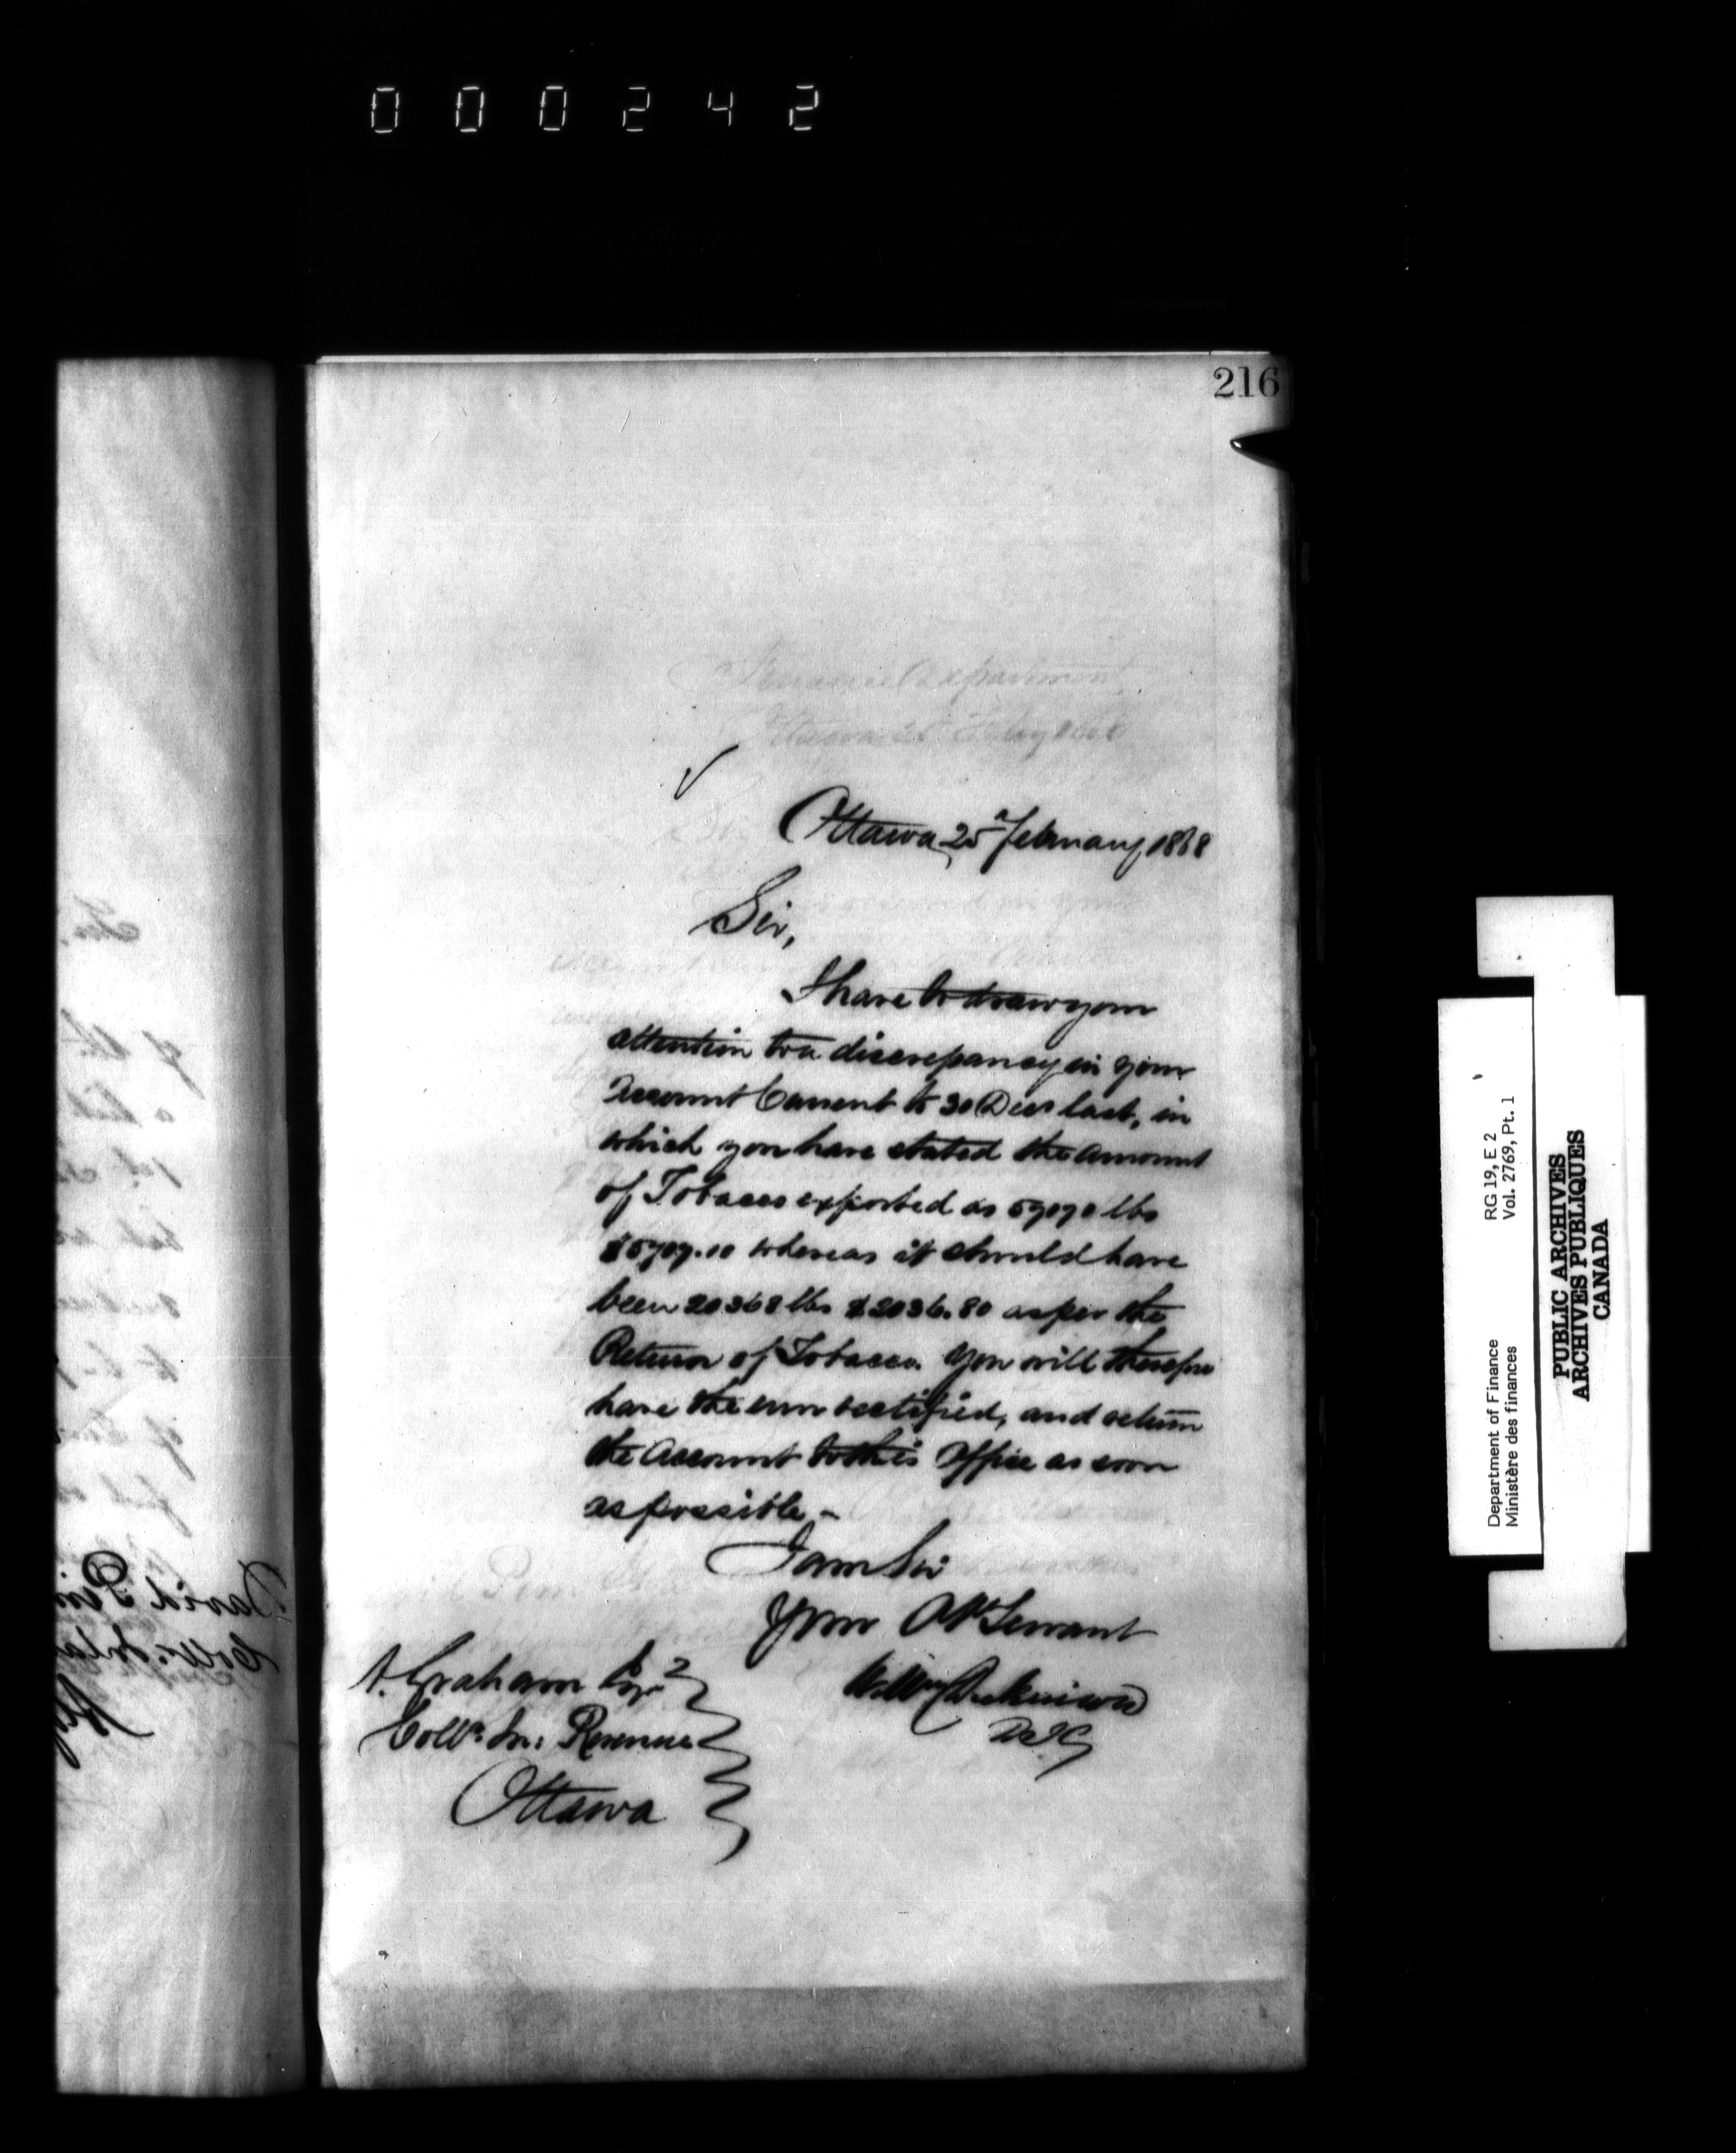 000242
216
Ottawa, 25 February 1868
Sir,
I have to draw your
attention to a discrepancy in your
Account Current to 30 Decr last, in
which you have stated the amount
of Tobacco exported as 57070 lbs
$5707.10 whereas it should have
been 20368 lbs $2036.80 as per the
Return of Tobacco. You will therefore
have the error rectified, and return
the Account to this Office as soon
as possible,-
I am Sir
Your Obt Servant
Wm Dickinson
A. Graham Esqr
Collr. In: Revenue
Ottawa
Department of Finance RG 19, E 2
Ministère des finances Vol. 2769, Pt. 1
PUBLIC ARCHIVES
ARCHIVES PUBLIQUES
CANADA